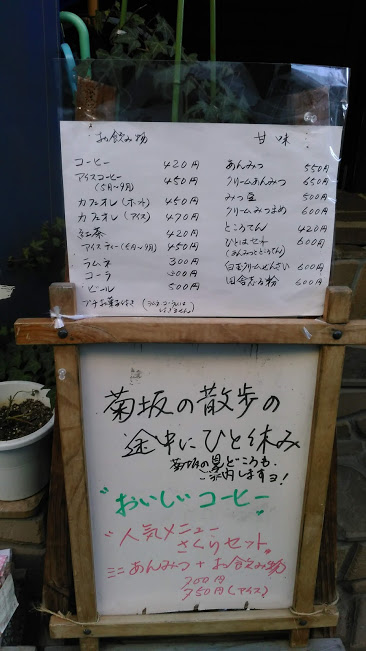 お飲み物
コーヒー 420円
アイスコーヒー 450円
(5月〜9月)
カフェオレ(ホット) 450円
カフェオレ(アイス) 470円
紅茶 420円
アイスティー(5月〜9月) 450円
ラムネ 300円
コーラ 400円
ビール 500円
プチお菓子付き
甘味
あんみつ 550円
クリームあんみつ 650円
みつ豆 500円
クリームみつまめ 600円
ところてん 420円
600円
(あんみつとところてん)
白玉クリームぜんざい 600円
田舎しる粉 600円
菊坂の散歩の
途中にひと休み
菊坂の見どころも
ご案内しますヨ!
おいしいコーヒー
人気メニュー
さくらセット。
ミニあんみつ+お飲み物
700円
750円(アイス)